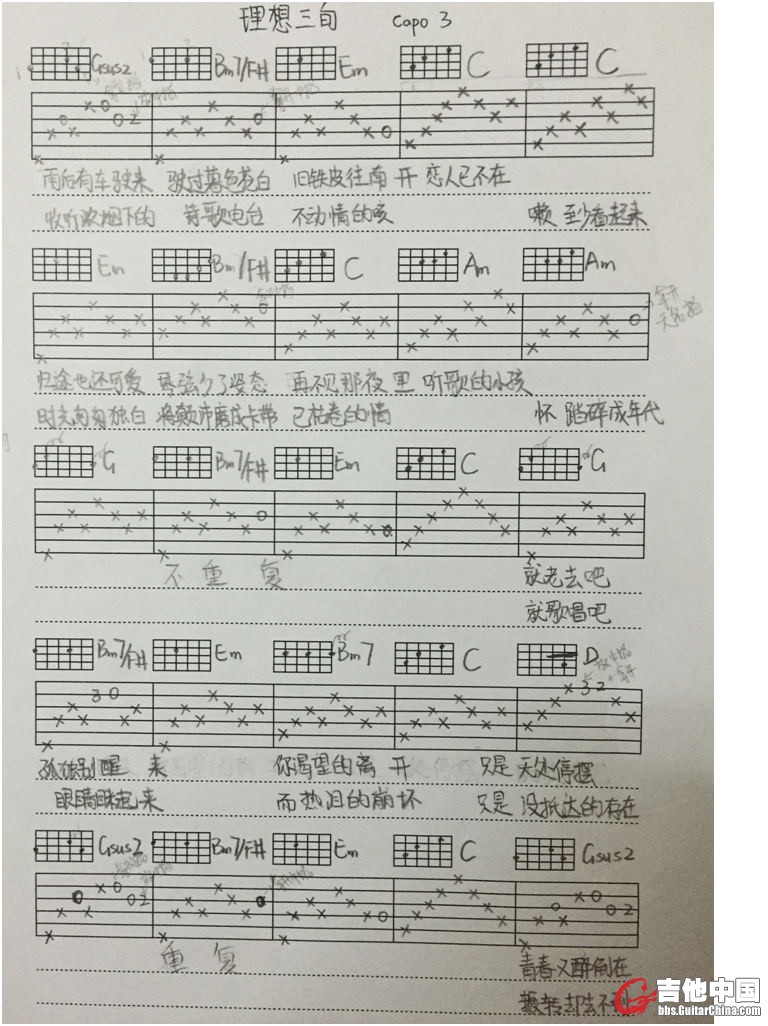 理想三旬 Capo 3
Gsus2 Bm7/F# Em C C
雨后有车驶来 驶过暮色苍白 旧铁皮往南开 恋人已不在
收听浓烟下的 诗歌电台 不动情的 嗽 至少看起来
Em Bm7/F# C Am Am
归途也还可爱 琴弦少了姿态 再不见那夜里 听歌的小孩
时光匆匆独白 将颠沛磨成卡带 已枯卷的情怀 踏碎成年代
G Bm7/F# Em C G
不重复 就老去吧
就歌唱吧
Bm7/F# Em Bm7 C D
孤独别醒来 你渴望的离开 只是无处停摆
眼睛眯起来 而热泪的崩坏 只是没抵达的存在
Gsus2 Bm7/F# Em C Gsus2
重复 青春又醉倒在
吉他中国
bbs.GuitarChina.com